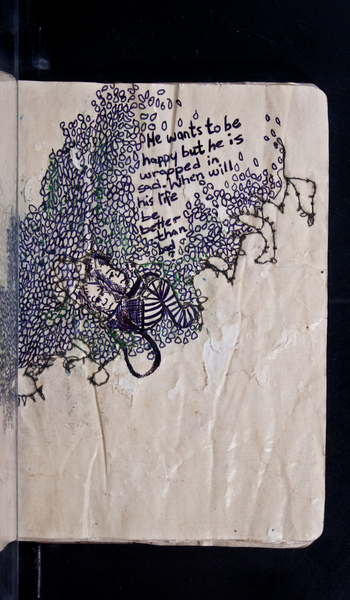 He wants to be
happy but he is
wrapped in
sad. When will
his life
be
better
than
bad
?